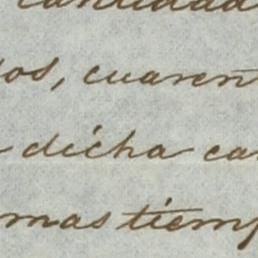 cantidad
os, cuaren
dicha ca
mas tiemp